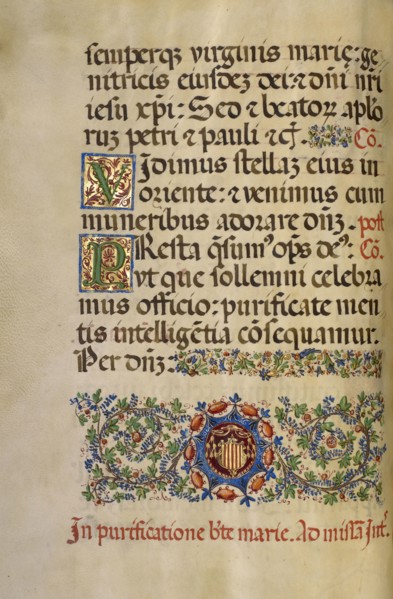 semperqꝫ virginis marię: ge
nitricis eiusdeꝫ dei: ⁊ dn̄i nr̄i
iesu xp̄i: Sed ⁊ beatoꝝ aplo
ruꝫ petri ⁊ pauli ⁊c̄. Cō.
Vidimus stellaꝫ eius in
oriente: ⁊ venimus cum
muneribus adorare dn̄ꝫ. post
PResta q̄sumꝰ op̄s deꝰ: Cō.
vt que sollemni celebra
mus officio: purificate men
tis intelligētia cōsequamur.
Per dn̄ꝫ:
In purificatione bt̄e marie. Ad missā Int̄.